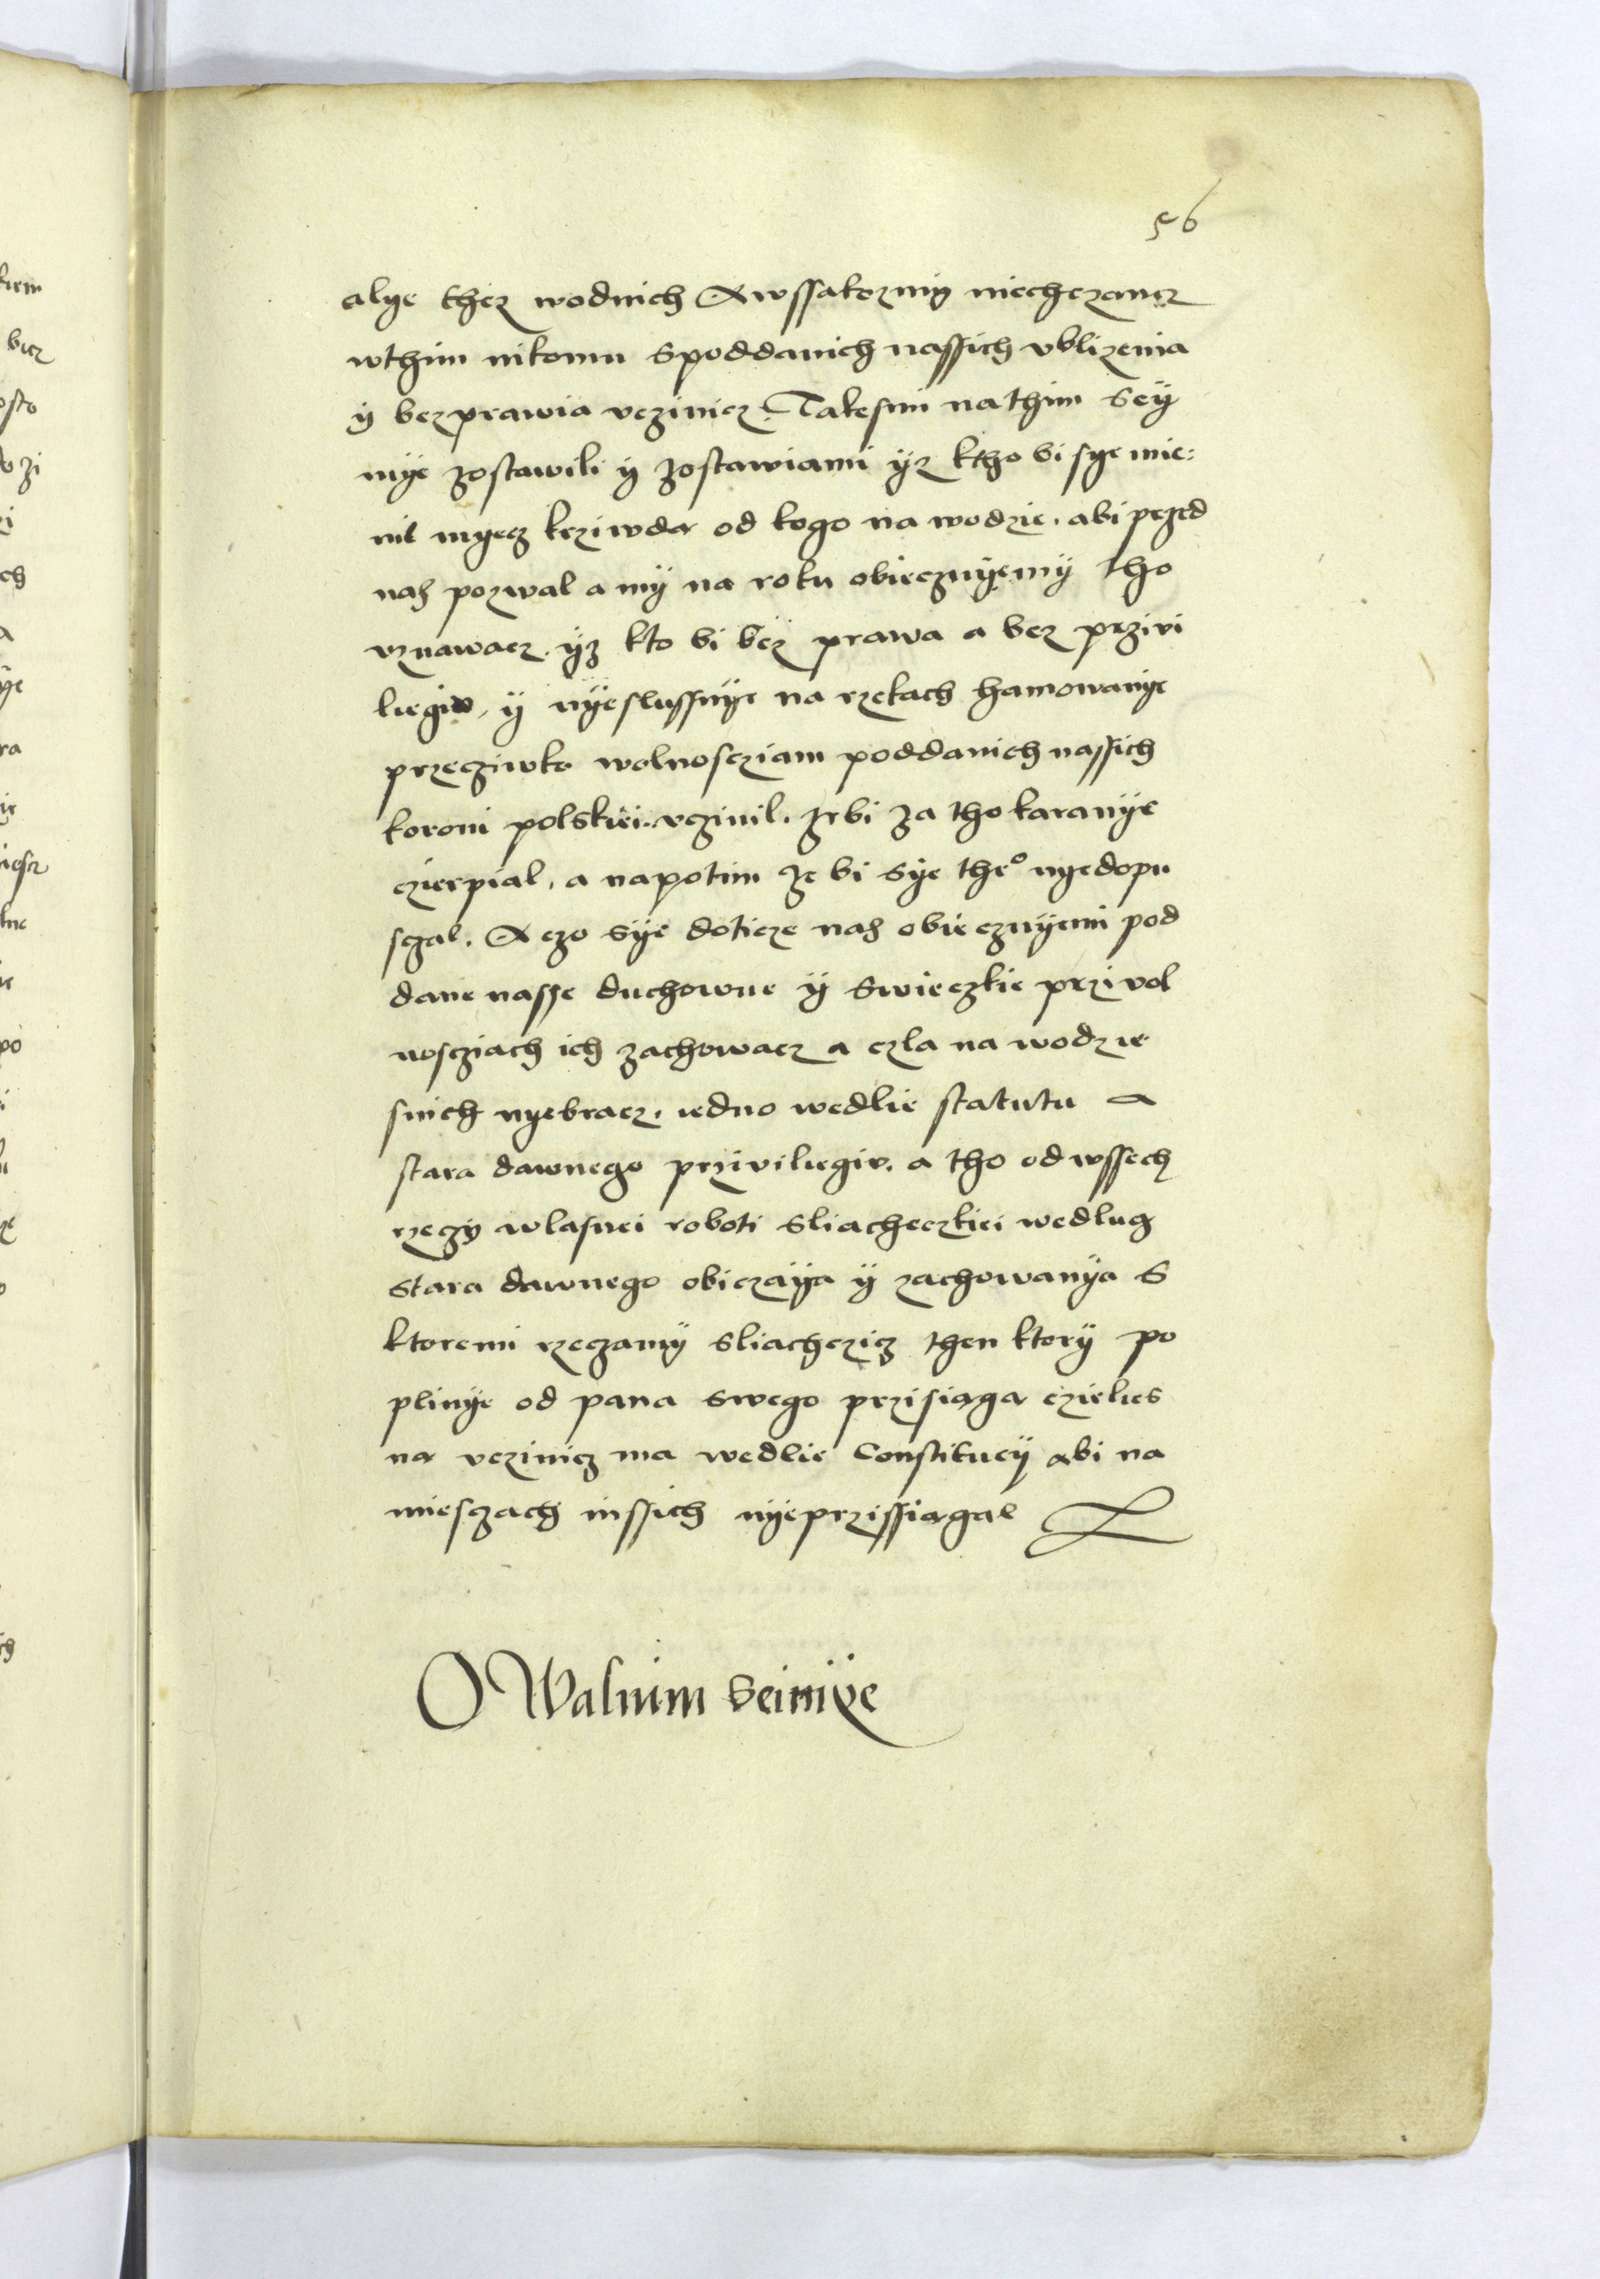 56
alye thez wodnich A wssakozmy niechczancz
wthim nikomu spoddanich nassich vblizenia
y bezprawia vczinicz. Takesmi nathim Sey
mye zostawili y zostawiami yz ktho bi sye mie:
nil myecz krziwda od kogo na wodzie. abi przed
nas pozwal a my na roku obieczuyemy tho
vznawacz. yz kto bi bez prawa a bez przivi
liegiv, y nyeslussnye na rzekach hamowanye
przecziwko wolnoscziam poddanich nassich
koroni polskiei. vczinil. zebi za tho karanye
czierpial, a napotim ze bi sye theo nyedopu
sczal. A czo sye doticze nas obieczuyemi pod
dane nasse duchowne y swieczkie przi vol
nosciach ich zachowacz a czla na wodzie
snich nyebracz. iedno wedlie statutu a
stara dawnego przivilie­giv. a tho od wssech
rzeczy wlasnei roboti sliacheczkiei wedlug
stara dawnego obiczaya y zachowanya s
ktoremi rzeczamy sliachczicz then ktory po
plinye od pana swego przisiaga czielies
na vczinicz ma wedlie Constitucy abi na
miesczach inssich nyeprzissiagal
O Walnim Seimye
bicz
osto
zi
ch
ra
po